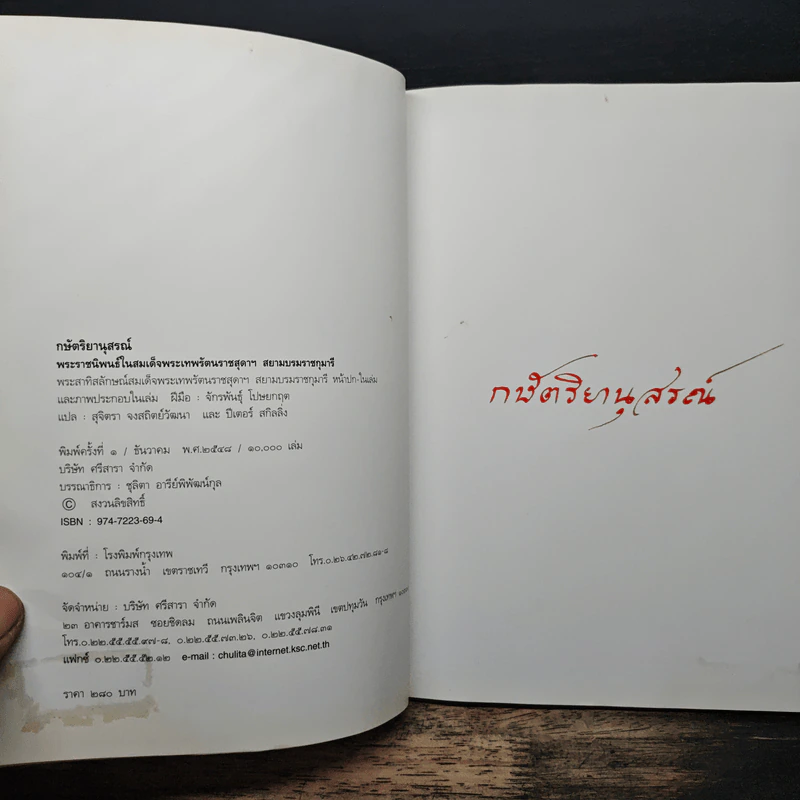 กษัตริยานุสรณ์
พระราชนิพนธ์ในสมเด็จพระเทพรัตนราชสุดาฯ สยามบรมราชกุมารี
พระสาทิสลักษณ์สมเด็จพระเทพรัตนราชสุดาฯ สยามบรมราชกุมารี หน้าปก-ในเล่ม
และภาพประกอบในเล่ม ฝีมือ : จักรพันธุ์ โปษยกฤต
แปล : สุจิตรา จงสถิตย์วัฒนา และ ปีเตอร์ สกิลลิ่ง
พิมพ์ครั้งที่ ๑ / ธันวาคม พ.ศ.๒๕๔๘ / ๑๐,๐๐๐ เล่ม
บริษัท ศรีสารา จำกัด
บรรณาธิการ : ชุลิตา อารีย์พิพัฒน์กุล
© สงวนลิขสิทธิ์
ISBN : 974-7223-69-4
พิมพ์ที่ : โรงพิมพ์กรุงเทพ
๑๐๔/๑ ถนนรางน้ำ เขตราชเทวี กรุงเทพฯ ๑๐๓๑๐ โทร.๐.๒๖.๔๒.๗๒.๘๑-๘
จัดจำหน่าย : บริษัท ศรีสารา จำกัด
๒๓ อาคารชาร์มส ซอยชิดลม ถนนเพลินจิต แขวงลุมพินี เขตปทุมวัน กรุงเทพฯ
โทร.๐.๒๒.๕๕.๕๕.๙๗-๘, ๐.๒๒.๕๕.๗๓.๒๖, ๐.๒๒.๕๕.๗๘.๓๑
แฟกซ์ ๐.๒๒.๕๕.๕๒.๑๒ e-mail : chulita@internet.ksc.net.th
ราคา ๒๘๐ บาท
กษัตริยานุสรณ์